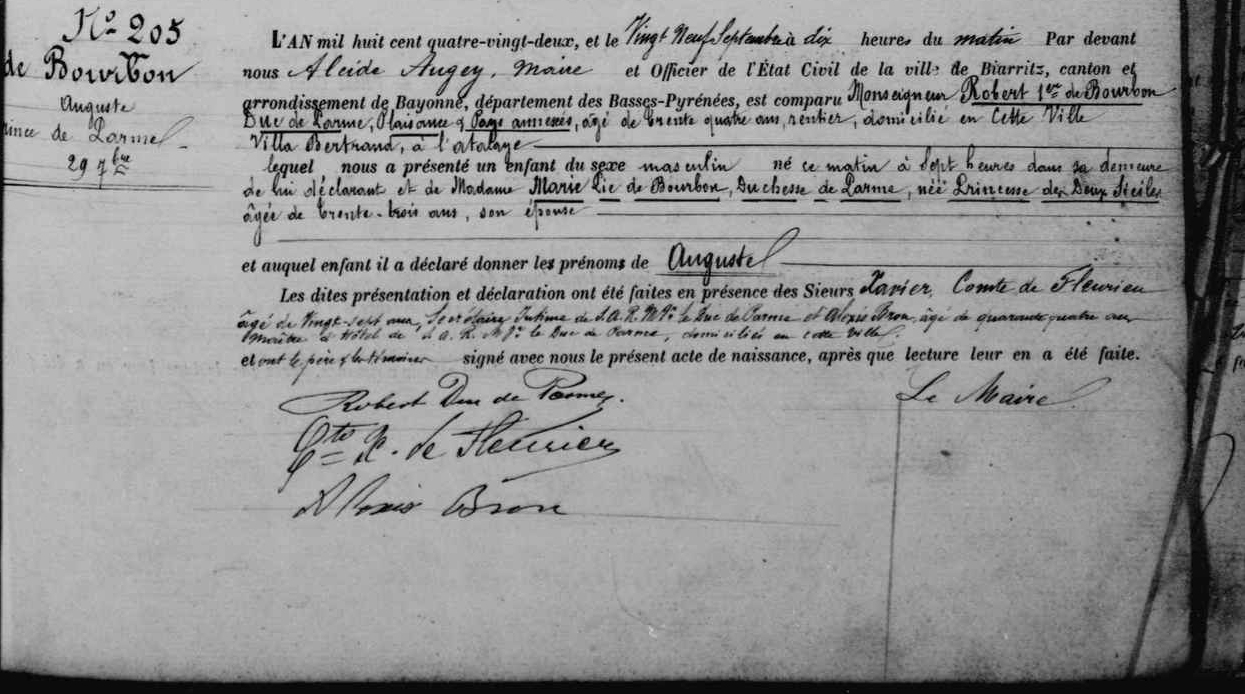 No 205
de Bourbon
Auguste
rince de Parme
29 7bre
L'AN mil huit cent quatre-vingt-deux, et le Vingt Neuf Septembre à dix heures du matin Par devant
nous Alcide Augey, Maire et Officier de l'État Civil de la ville de Biarritz, canton et
arrondissement de Bayonne, département des Basses-Pyrénées, est comparu Monseigneur Robert 1er de Bourbon
Duc de Parme, Plaisance & Pays annexés, âgé de trente quatre ans, rentier, domicilié en Cette Ville
Villa Bertrand, à l'atalaye
lequel nous a présenté un enfant du sexe masculin né ce matin à Sept heures dans sa demeure
de lui déclarant et de Madame Marie Pie de Bourbon, Duchesse de Parme, néé Princesse des Deux Siciles
âgée de trente-trois ans, son épouse
et auquel enfant il a déclaré donner les prénoms de Auguste
Les dites présentation et déclaration ont été faites en présence des Sieurs Xavier, Comte de Fleurieu
âgé de Vingt-sept ans, Secrétaire Intime de S.A.R. Mgr le Duc de Parme et Alexis Bron, âgé de quarante quatre ans
Maître d'Hôtel de S.A.R. Mgr le Duc de Parme, domiciliés en cette Ville.
et ont le père & les témoins signé avec nous le présent acte de naissance, après que lecture leur en a été faite.
Robert Duc de Parme.
Le Maire
Cte X. de Fleurieu
Alexis Bron